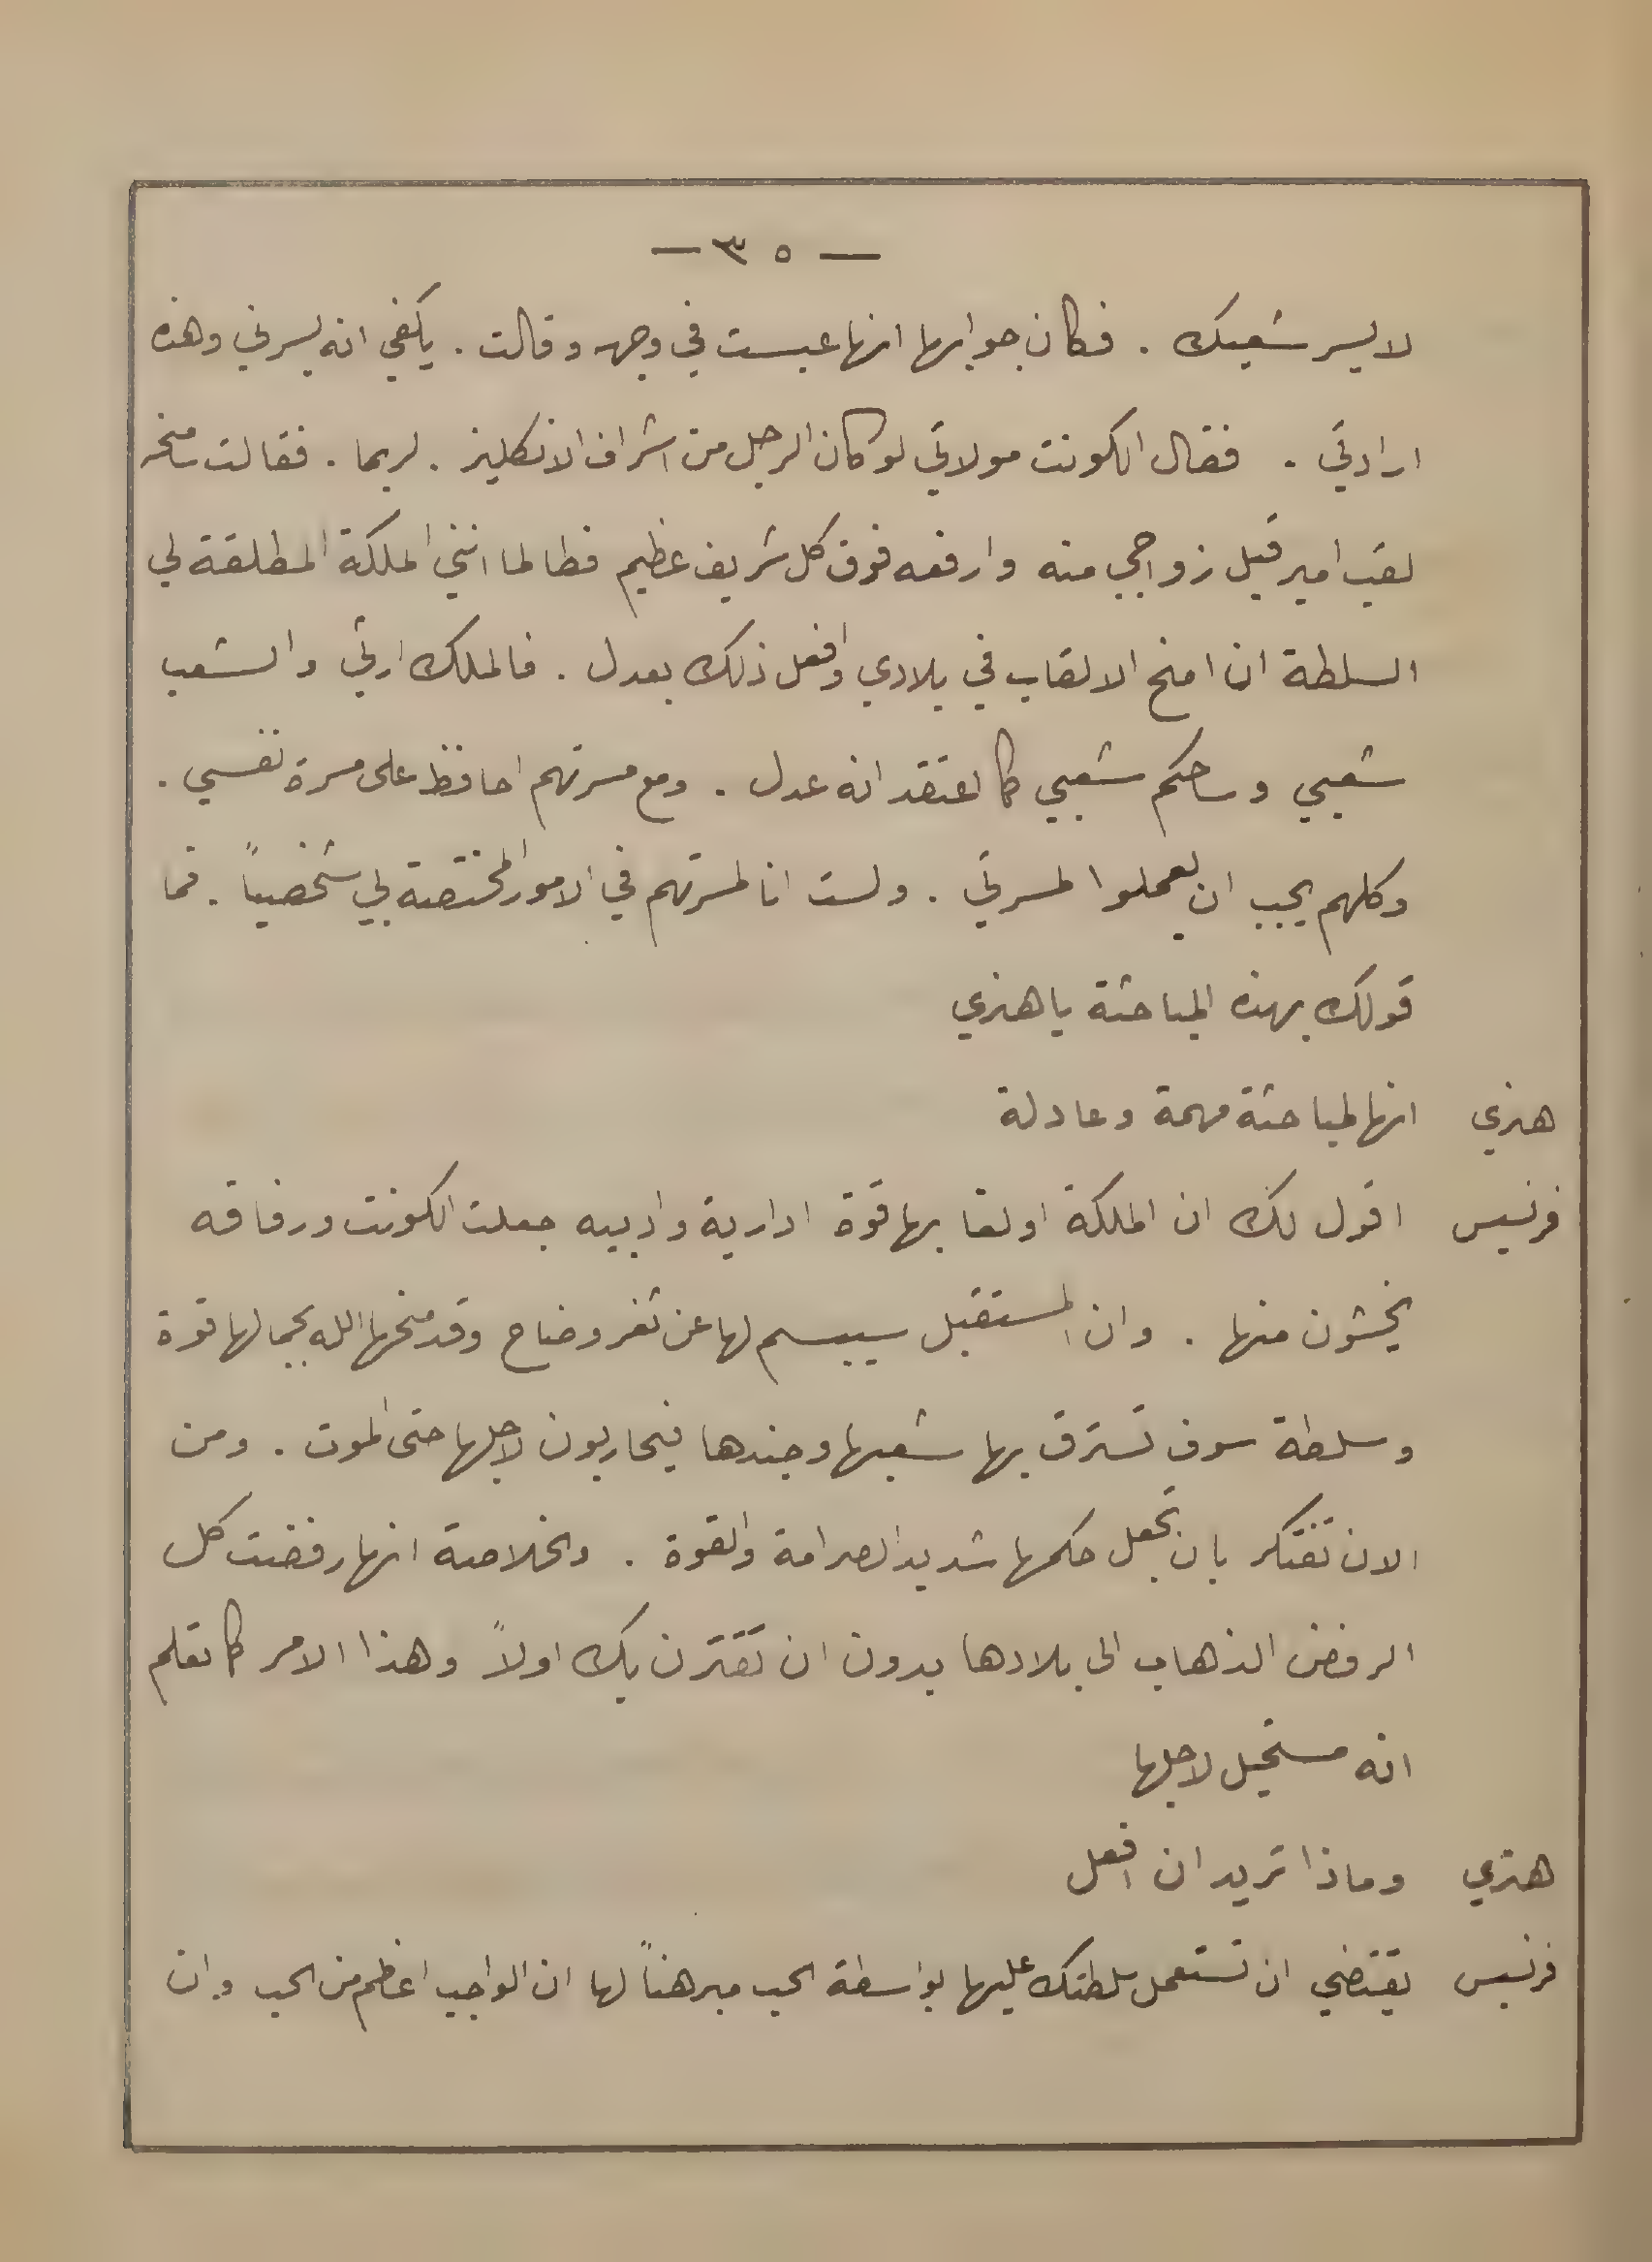 — ٣٥ —
لا يسر شعبك . فكان جوابها انها عبست في وجهه وقالت . يكفي انه يسرني وهذه
ارادتي . فقال الكونت مولاتي لو كان الرجل من اشراف الانكليز . لربما . فقالت سامنحه
لقب امير قبل زواجي منه وارفعه فوق كل شريف عظيم فطالما انني الملكة المطلقة لي
السلطة ان امنح الالقاب في بلادي وافعل ذلك بعدل . فالملك ارثي والشعب
شعبي وساحكم شعبي كما اعتقد انه عدل . ومع مسرتهم احافظ على مسرة نفسي .
وكلهم يجب ان يعملوا لمسرتي . ولست انا لمسرتهم في الامور المختصة لي شخصياً . فما
قولك بهذه المباحثة يا هنري
هنري انها لمباحثة مهمة وعادلة
فرنسيس اقول لك ان الملكة اولغا بها قوة ادارية وادبيه جعلت الكونت ورفاقه
يخشون منها . وان المستقبل سيبسم لها عن ثغر وضاح وقد منحها الله بجمالها قوة
وسلطة سوف تسترق بها شعبها وجندها فيحاربون لاجلها حتى الموت . ومن
الان تفتكر بان تجعل حكمها شديد الصرامة والقوة . والخلاصة انها رفضت كل
الرفض الذهاب الى بلادها بدون ان تقترن بك اولاً وهذا الامر كما تعلم
انه مستحيل لاجلها
هنري وماذا تريد ان افعل
فرنسيس يقتضي ان تستعمل سلطتك عليها بواسطة الحب مبرهناً لها ان الواجب اعظم من الحب وان